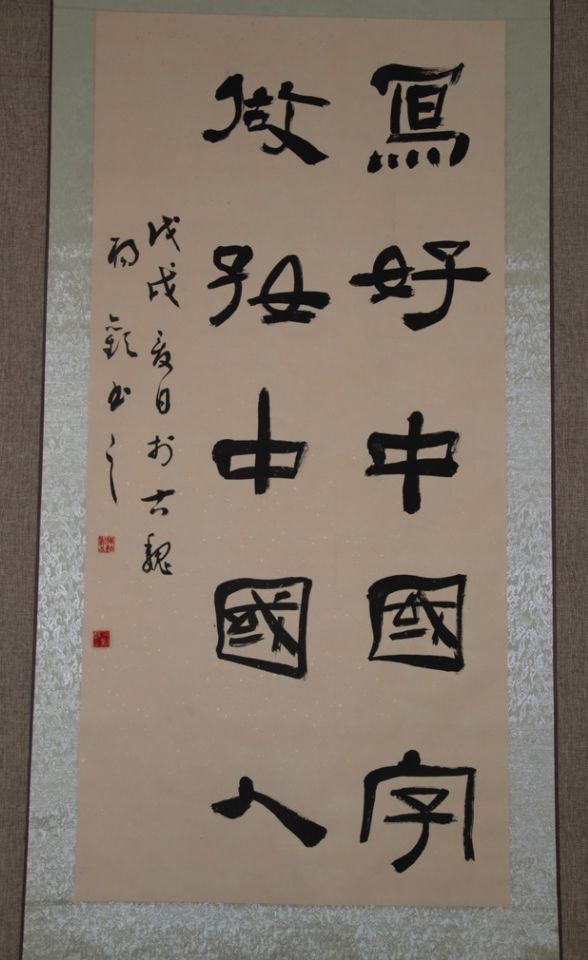 寫好中國字
做好中國人
戊戌夏日於古魏
書之